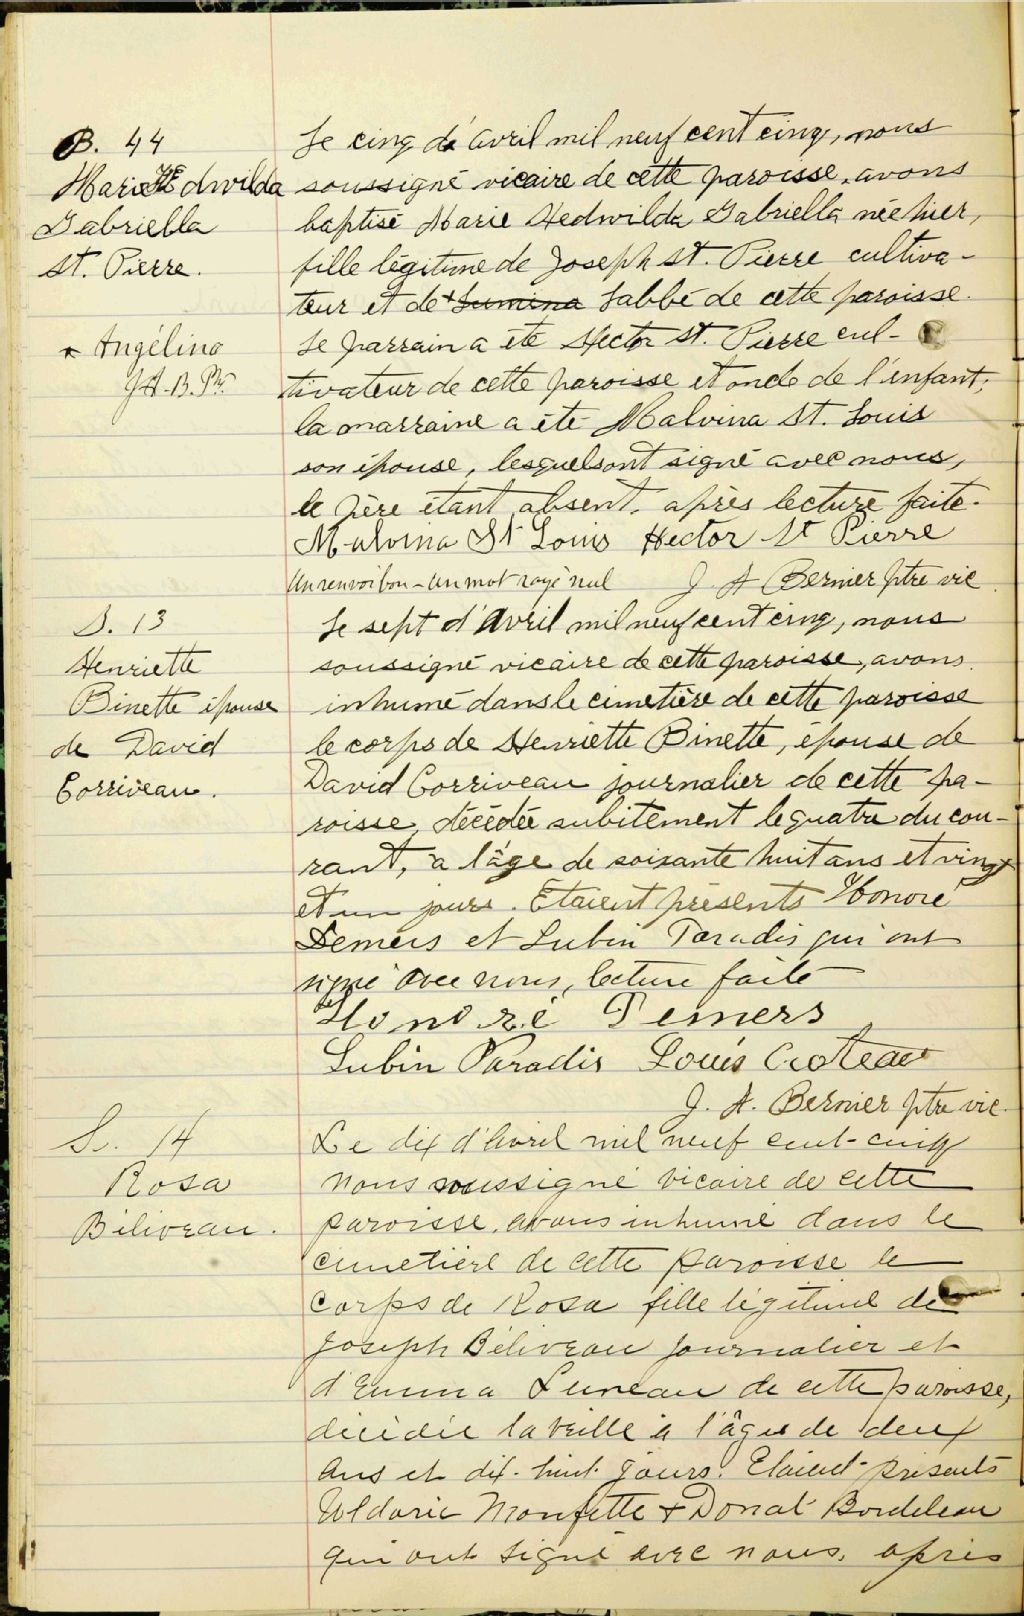 B. 44
Marie Hedwilda
Gabriella
St. Pierre.
* Angélina
J.A.B. Ptre
Le cinq d'avril mil neuf cent cinq, nous
soussigné vicaire de cette paroisse, avons
baptisé Marie Hedwilda Gabriella née hier,
fille légitime de Joseph St. Pierre cultiva-
teur et de * Lumina Labbé de cette paroisse.
Le parrain a été Hector St. Pierre cul-
tivateur de cette paroisse et oncle de l'enfant;
la marraine a été Malvina St. Louis
son épouse, lesquels ont signé avec nous,
le père étant absent, après lecture faite.
Malvina St Louis Hector St Pierre
Un renvoi bon - un mot rayé nul J. A. Bernier Ptre vic.
S. 13
Henriette
Binette épouse
de David
Corriveau.
Le sept d'Avril mil neuf cent cinq, nous
soussigné vicaire de cette paroisse, avons
inhumé dans le cimetière de cette paroisse
le corps de Henriette Binette, épouse de
David Corriveau journalier de cette pa-
roisse, décédée subitement le quatre du cou-
rant, à l'âge de soixante huit ans et vingt
et un jours. Etaient présents Honoré
Demers et Lubin Paradis qui ont
signé avec nous, lecture faite
Honoré Demers
Lubin Paradis Louis Croteau
J. A. Bernier Ptre vic.
S. 14
Rosa
Béliveau.
Le dix d'Avril mil neuf cent-cinq
nous soussigné vicaire de cette
paroisse, avons inhumé dans le
cimetière de cette paroisse le
corps de Rosa fille légitime de
Joseph Béliveau journalier et
d'Emma Luneau de cette paroisse,
décédée la veille à l'âge de deux
ans et dix-huit jours. Etaient présents
Uldoric Monfette & Donat Bordeleau
qui ont signé avec nous, après